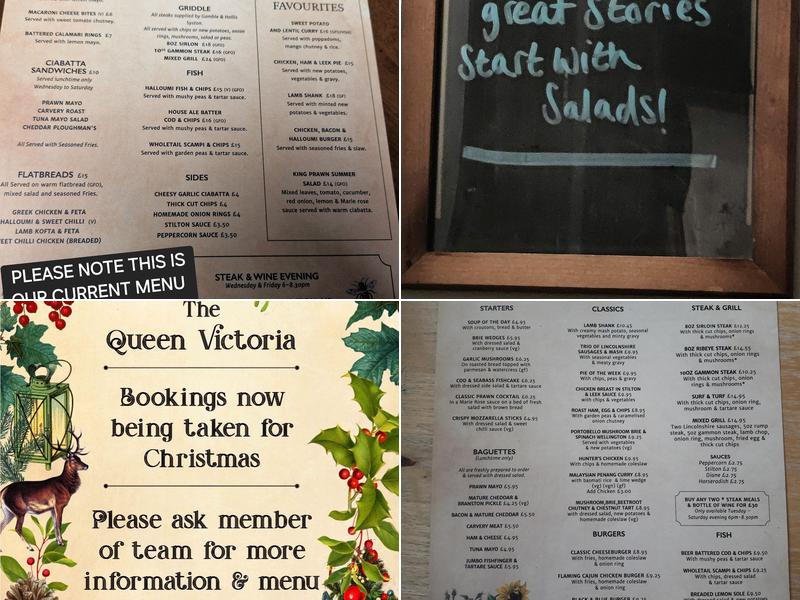 MACARONI CHEESE BITES (V) £6
Served with sweet tomato chutney.
BATTERED CALAMARI RINGS £7
Served with lemon mayo.
CIABATTA
SANDWICHES £10
Served lunchtime only
Wednesday to Saturday
PRAWN MAYO
CARVERY ROAST
TUNA MAYO SALAD
CHEDDAR PLOUGHMAN'S
All served with Seasoned Fries.
FLATBREADS £15
All Served on warm flatbread (GFO),
mixed salad and seasoned Fries.
GREEK CHICKEN & FETA
HALLOUMI & SWEET CHILLI (V)
LAMB KOFTA & FETA
SWEET CHILLI CHICKEN (BREADED)
PLEASE NOTE THIS IS
OUR CURRENT MENU
GRIDDLE
All steaks supplied by Gamble & Hollis
Syston.
All served with chips or new potatoes, onion
rings, mushrooms, salad or peas.
8OZ SIRLON £18 (GFO)
10oz GAMMON STEAK £16 (GFO)
MIXED GRILL £24 (GFO)
FISH
HALLOUMI FISH & CHIPS £15 (V) (GFO)
Served with mushy peas & tartar sauce.
HOUSE ALE BATTER
COD & CHIPS £16 (GFO)
Served with mushy peas & tartar sauce.
WHOLETAIL SCAMPI & CHIPS £15
Served with garden peas & tartar sauce.
SIDES
CHEESY GARLIC CIABATTA £4
THICK CUT CHIPS £4
HOMEMADE ONION RINGS £4
STILTON SAUCE £3.50
PEPPERCORN SAUCE £3.50
FAVOURITES
SWEET POTATO
AND LENTIL CURRY £16
Served with poppadoms,
mango chutney & rice.
CHICKEN, HAM & LEEK PIE £15
Served with new potatoes,
vegetables & gravy.
LAMB SHANK £18 (GF)
Served with minted new
potatoes & vegetables.
CHICKEN, BACON &
HALLOUMI BURGER £15
Served with seasoned fries & slaw.
KING PRAWN SUMMER
SALAD £14 (GFO)
Mixed leaves, tomato, cucumber,
red onion, lemon & Marie rose
sauce served with warm ciabatta.
STEAK & WINE EVENING
Wednesday & Friday 6-8.30pm
great Stories
Start with
Salads!
The
Queen Victoria
Bookings now
being taken for
Christmas
Please ask member
of team for more
information & menu
STARTERS
SOUP OF THE DAY £4.95
With croutons, bread & butter
BRIE WEDGES £5.95
With dressed salad &
cranberry sauce (vg)
GARLIC MUSHROOMS £6.25
On toasted bread topped with
parmesan & watercress (gf)
COD & SEABASS FISHCAKE £8.25
With dressed side salad & tartare sauce
CLASSIC PRAWN COCKTAIL £6.25
In a Marie Rose sauce on a bed of fresh
salad with brown bread
CRISPY MOZZARELLA STICKS £4.95
With dressed salad & sweet
chilli sauce (vg)
BAGUETTES
(Lunchtime only)
All are freshly prepared to order
& served with dressed salad.
PRAWN MAYO £5.95
MATURE CHEDDAR &
BRANSTON PICKLE £4.25 (vg)
BACON & MATURE CHEDDAR £5.50
CARVERY MEAT £5.50
HAM & CHEESE £4.95
TUNA MAYO £4.95
JUMBO FISHFINGER &
TARTARE SAUCE £5.95
CLASSICS
LAMB SHANK £10.45
With creamy mash potato, seasonal
vegetables and minty gravy
TRIO OF LINCOLNSHIRE
SAUSAGES & MASH £9.95
With seasonal vegetables
& meaty gravy
PIE OF THE WEEK £9.95
With chips, peas & gravy
CHICKEN BREAST IN STILTON
& LEEK SAUCE £9.95
with chips & vegetables
ROAST HAM, EGG & CHIPS £8.95
With garden peas & caramelised
onion chutney
PORTOBELLO MUSHROOM BRIE &
SPINACH WELLINGTON £9.25
Served with vegetables
& new potatoes (vg)
HUNTER'S CHICKEN £9.95
With chips & homemade coleslaw
MALAYSIAN PENANG CURRY £8.95
with basmati rice & lime wedge
(vg) (vgn) (gf)
Add Chicken £3.00
MUSHROOM, BRIE, BEETROOT
CHUTNEY & CHESTNUT TART £8.95
with dressed salad, new potatoes &
homemade coleslaw (vg)
BURGERS
CLASSIC CHEESEBURGER £8.95
With fries, homemade coleslaw
& onion ring
FLAMING CAJUN CHICKEN BURGER £9.25
With fries, homemade coleslaw
& onion ring
STEAK & GRILL
8OZ SIRLOIN STEAK £12.25
With thick cut chips, onion rings
& mushrooms*
8OZ RIBEYE STEAK £14.55
With thick cut chips, onion rings
& mushrooms*
10OZ GAMMON STEAK £10.25
With thick cut chips, onion
rings & mushrooms*
SURF & TURF £14.95
With thick cut chips, onion ring,
mushroom & tartare sauce
MIXED GRILL £14.95
Two Lincolnshire sausages, 5oz rump
steak, 5oz gammon steak, lamb chop,
onion ring, mushroom, fried egg &
thick cut chips
SAUCES
Peppercorn £2.75
Stilton £2.75
Diane £2.75
Horseradish £2.75
BUY ANY TWO * STEAK MEALS
& BOTTLE OF WINE FOR £30
Only available Tuesday -
Saturday evening 6pm - 8.30pm
FISH
BEER BATTERED COD & CHIPS £9.50
With mushy peas & tartare sauce
WHOLETAIL SCAMPI & CHIPS £9.25
With chips, dressed salad
& tartar sauce
BREADED LEMON SOLE £9.50